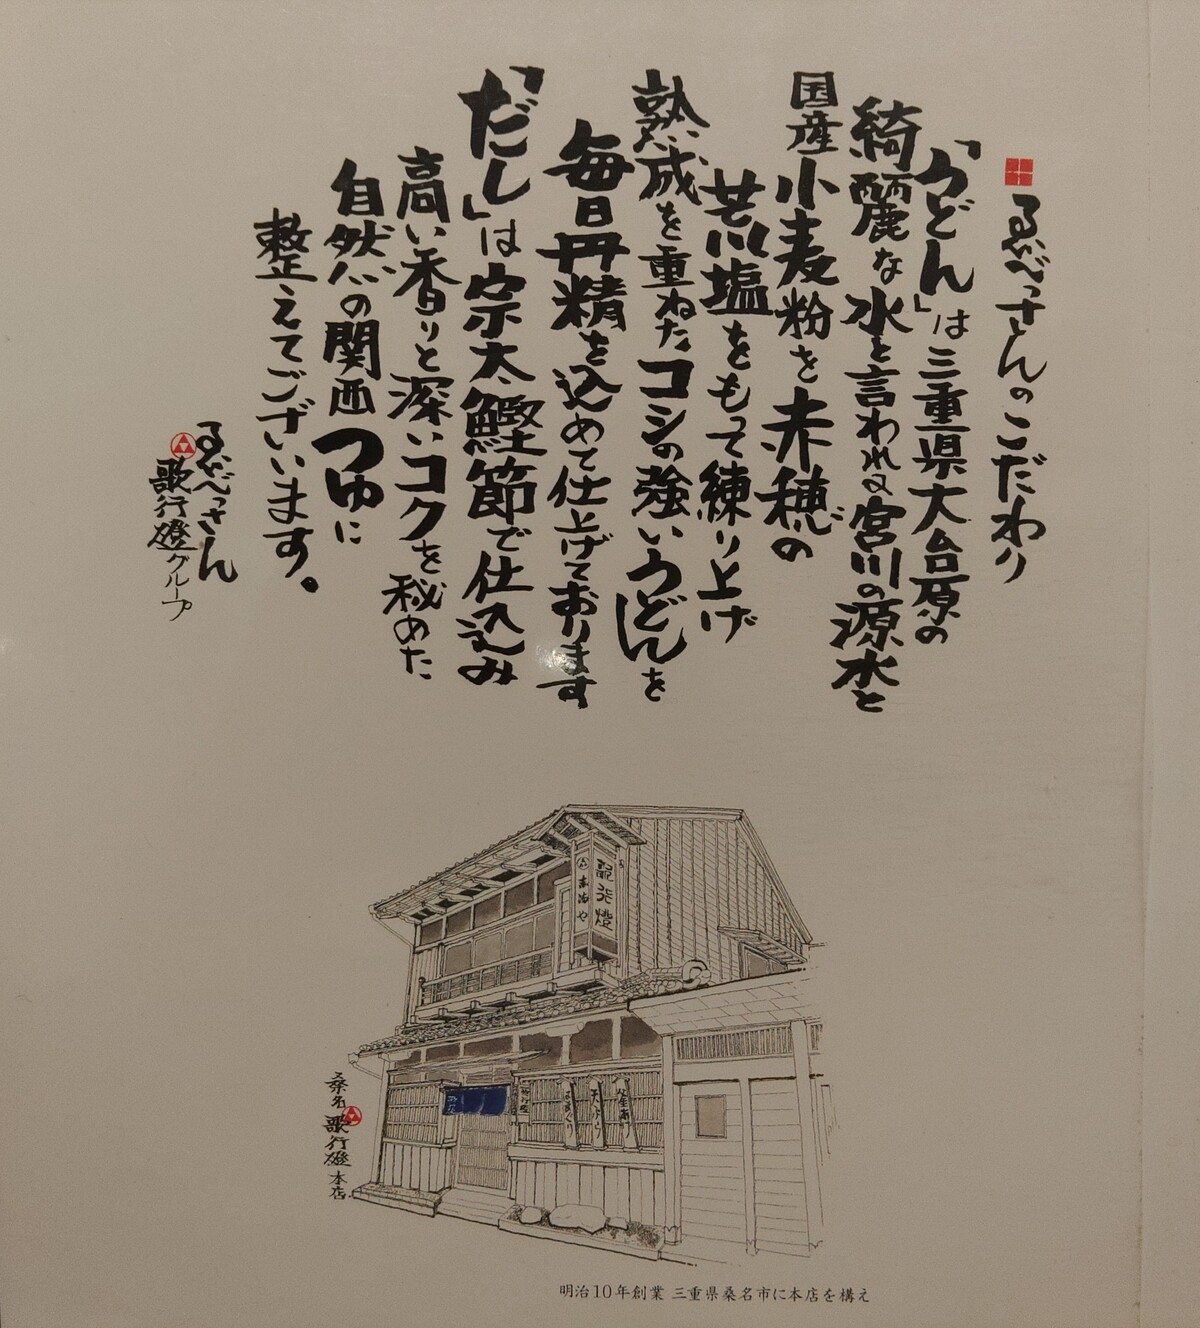 ゑべっさんのこだわり
「うどん」は三重県大台原の
綺麗な水と言われる宮川の源水と
国産小麦粉を赤穂の
荒川塩をもって練り上げ
熟成を重ねたコシの強いうどんを
毎日丹精を込めて仕上げております
「だし」は宗太鰹節で仕込み
高い香りと深いコクを秘めた
自然の関西つゆに
整えてございます。
ゑべっさん
歌行燈グループ
歌行燈
桑名 歌行燈 本店
はまぐり
天ぷら
明治10年創業 三重県桑名市に本店を構え